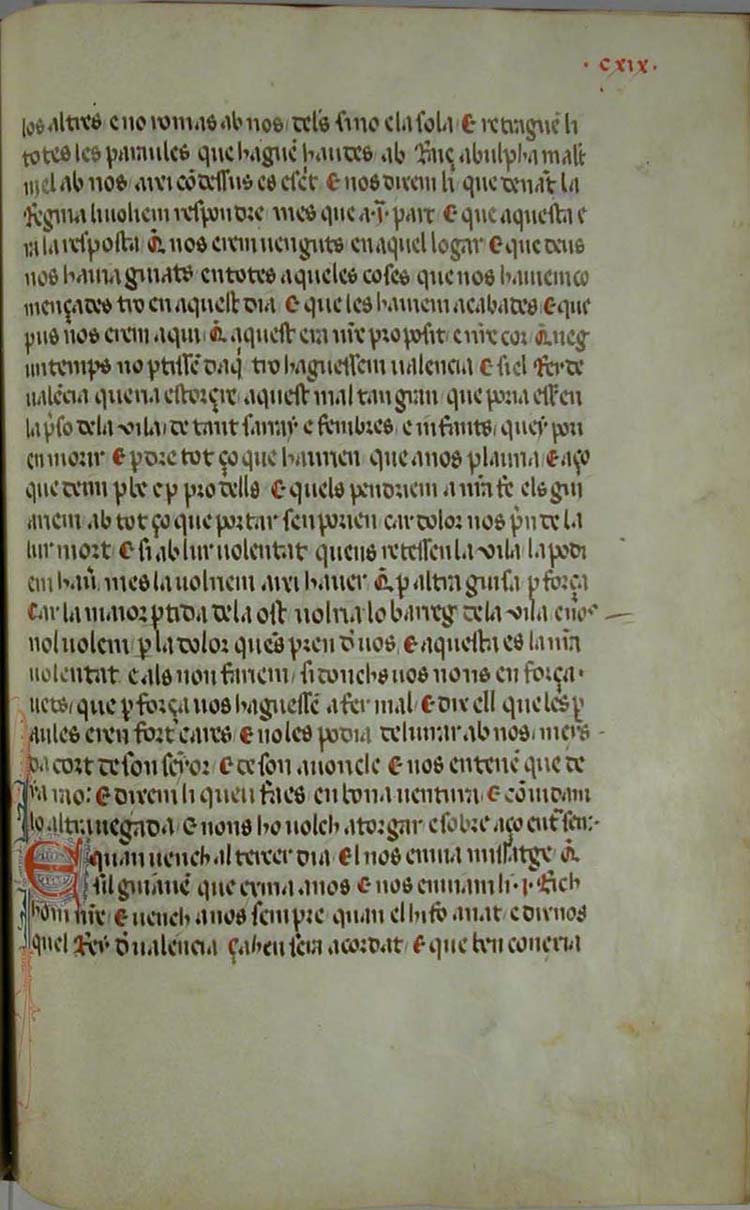 · CXIX ·
los altres e no romas ab nos dels sino ela sola E retraguē li
totes les paraules que haguē haudes ab Raiç abulphamalt
mel ab nos axi cō dessus es escͥt E nos dixem li que denāt la
Regina li uoliem respondre mes que a · I · part E que aquesta e
ra la resposta Q̄ nos erem uenguts en aquel logar E que deus
nos hauia guiats en totes aqueles coses que nos hauiem co
mençades tro en aquest dia E que les hauiem acabades E que
pus nos erem aqui Q̄ aquest era nr̄e proposit e nr̄e cor Q̄ neg
un temps no ꝑtissē daq̄ tro haguessem ualencia E si el Rey de
ualēcia que na estorçre aquest mal tan gran que poria esser en
la p̄so de la vila de tant sarray e fembres e infants quey pori
en morir E ꝑdre tot ço que haurien que a nos plauria E aço
que deim ꝑ be e ꝑ pro dells E quels pendriem a nr̄a fe els gui
ariem ab tot ço que portar sen porien car dolor nos p̄n de la
lur mort E si ab lur uolentat quens retessen la vila la podi
em hauͬ mes la uolriem axi hauer Q̄ ꝑ altra guisa ꝑ força
Car la maior ꝑtida de la ost uolria lo barreg de la vila e nos
nol uolem ꝑ la dolor quens pren d̄ nos E aquesta es la nr̄a
uolentat e als non fariem si donchs uos nons en força
uets que ꝑ força uos haguessē a fer mal E dix ell que les ꝑ
aules eren fort cares E no les podia deliurar ab nos meys
dacort de son seyor E de son auoncle E nos entenē que de
ya rao E dixem li queu faes en bona uentura E cōuidam
lo altra uegada E nons ho uolch atorgar e sobre aço ent̄sen ·
E quan uench al tercer dia El nos enuia missatge Q̄
sil guiauē que exiria a nos E nos enuiam li · I · Rich
hom nr̄e E uench a nos sempre quan el hi fo anat e dix nos
quel Rey d̄ ualencia çahen sera acordat E que ben conexia